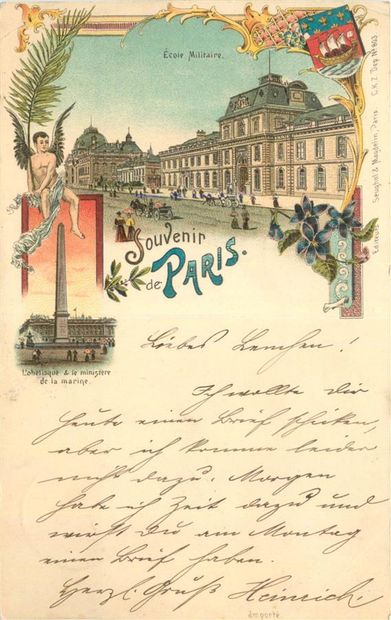 École Militaire.
Souvenir
de PARIS.
L'obélisque & le ministère
de la marine.
Liebes Lenchen!
Ich wollte Dir
heute einen Brief schicken,
aber ich komme leider
nicht dazu. Morgen
habe ich Zeit dazu und
wirst Du am Montag
einen Brief haben.
Herzl. Gruß Heinrich.
déposé
Paris. C.K.Z. Dep. No 803